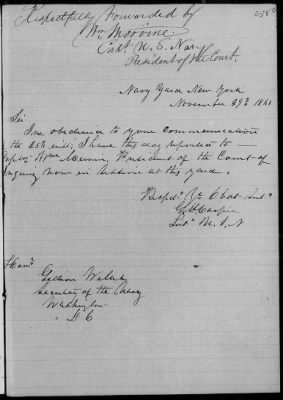 Respectfully forwarded by
Wm Mervine
Capt U. S. Navy
President of the Court.
Navy Yard New York
November 29th 1861
Sir
In obedience to your communication
the 25th inst; I have this day reported to
Capt Wm Mervine, President of the Court of
Inquiry now in session at this yard.
Respecy Yr Obdt Servt
U. S. N
Honl
Gideon Welles
Secretary of the Navy
Washington
D C